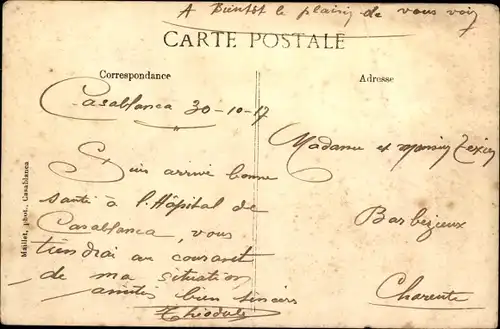 A Bientôt le plaisir de vous voir
CARTE POSTALE
Correspondance
Adresse
Casablanca 30-10-17
Suis arrivé bonne
santé à l'Hôpital de
Casablanca, vous
tiendrai au courant
de ma situation
amitiés bien sincères
Madame et
Barbezieux
Charente
Maillet, phot., Casablanca